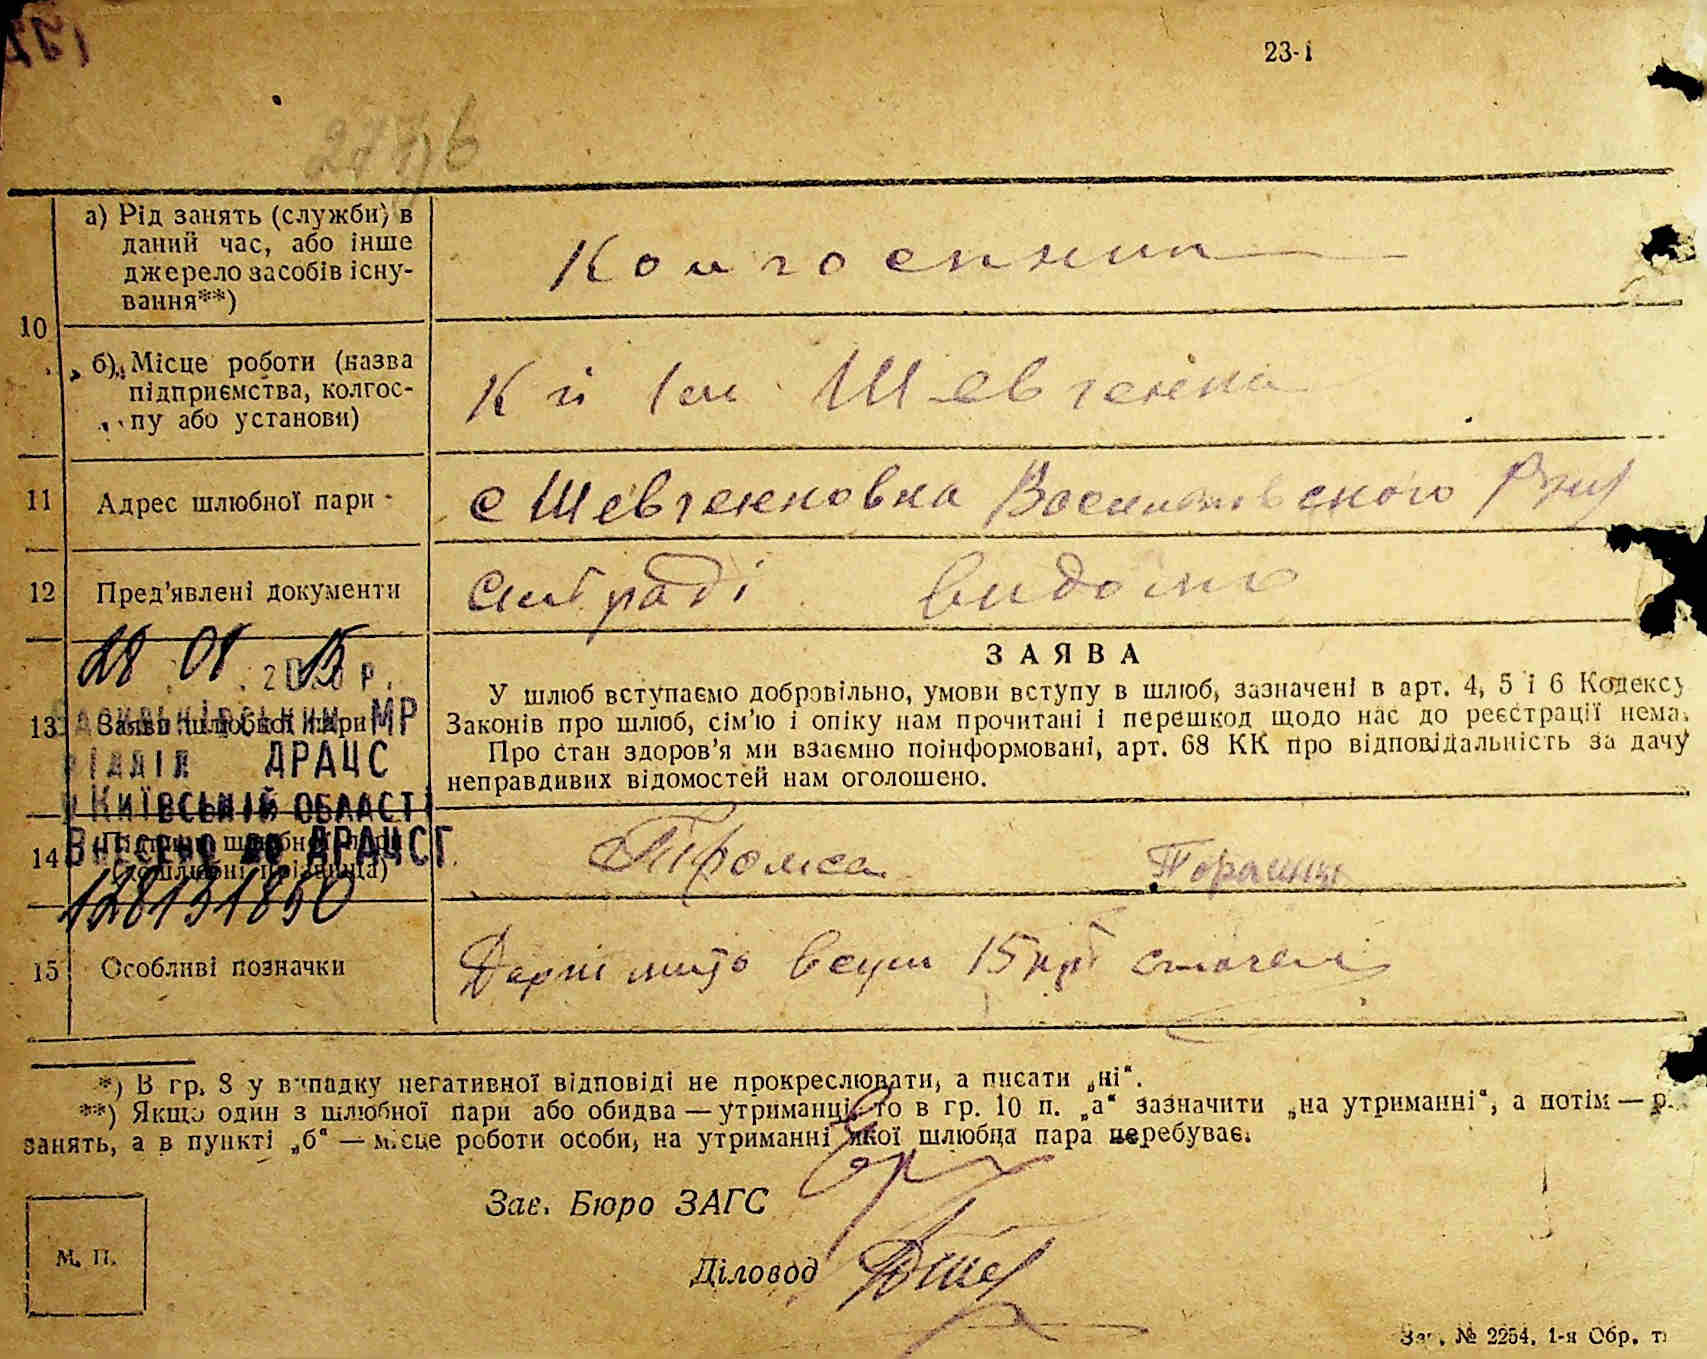 23-і
а) Рід занять (служби) в
даний час, або інше
джерело засобів існу-
вання**)
Колгоспник
10
б) Місце роботи (назва
підприємства, колгос-
пу або установи)
К п Ім Шевченка
11
Адрес шлюбної пари
с Шевченковка Васильківського р-ну
12
Пред'явлені документи
сільраді видомо
28 01 2015 р.
13
Заява шлюбної пари
МР
ВІДДІЛ ДРАЦС
КИЇВСЬКІЙ ОБЛАСТІ
ЗАЯВА
У шлюб вступаємо добровільно, умови вступу в шлюб, зазначені в арт. 4, 5 і 6 Кодексу
Законів про шлюб, сім'ю і опіку нам прочитані і перешкод щодо нас до реєстрації нема.
Про стан здоров'я ми взаємно поінформовані, арт. 68 КК про відповідальність за дачу
неправдивих відомостей нам оголошено.
14
Внесено до ДРАЦСГ
128131850
15
Особливі позначки
15 крб
*) В гр. 8 у випадку негативної відповіді не прокреслювати, а писати „ні“.
**) Якщо один з шлюбної пари або обидва — утриманці, то в гр. 10 п. „а“ зазначити „на утриманні“, а потім — р.
занять, а в пункті „б“ — місце роботи особи, на утриманні якої шлюбна пара перебуває.
Зав. Бюро ЗАГС
М. П.
Діловод
Зак. № 2254, 1-я Обр. т